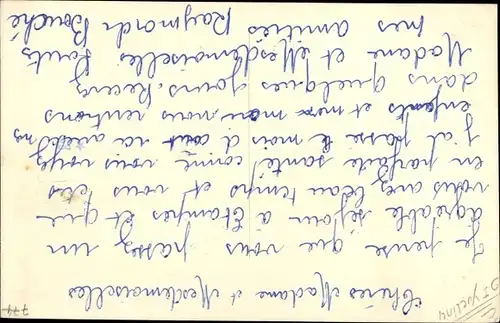 Chères Madame et Mesdemoiselles
Je pense que vous passez un
agréable séjour à Etampes et que
vous avez beau temps et vous êtes
en parfaite santé comme vous voyez
j'ai passé le mois d'août ici avec nos
enfants et nous rentrons
dans quelques jours. Recevez
Madame et Mesdemoiselles
mes amitiés Raymond Bouché
774